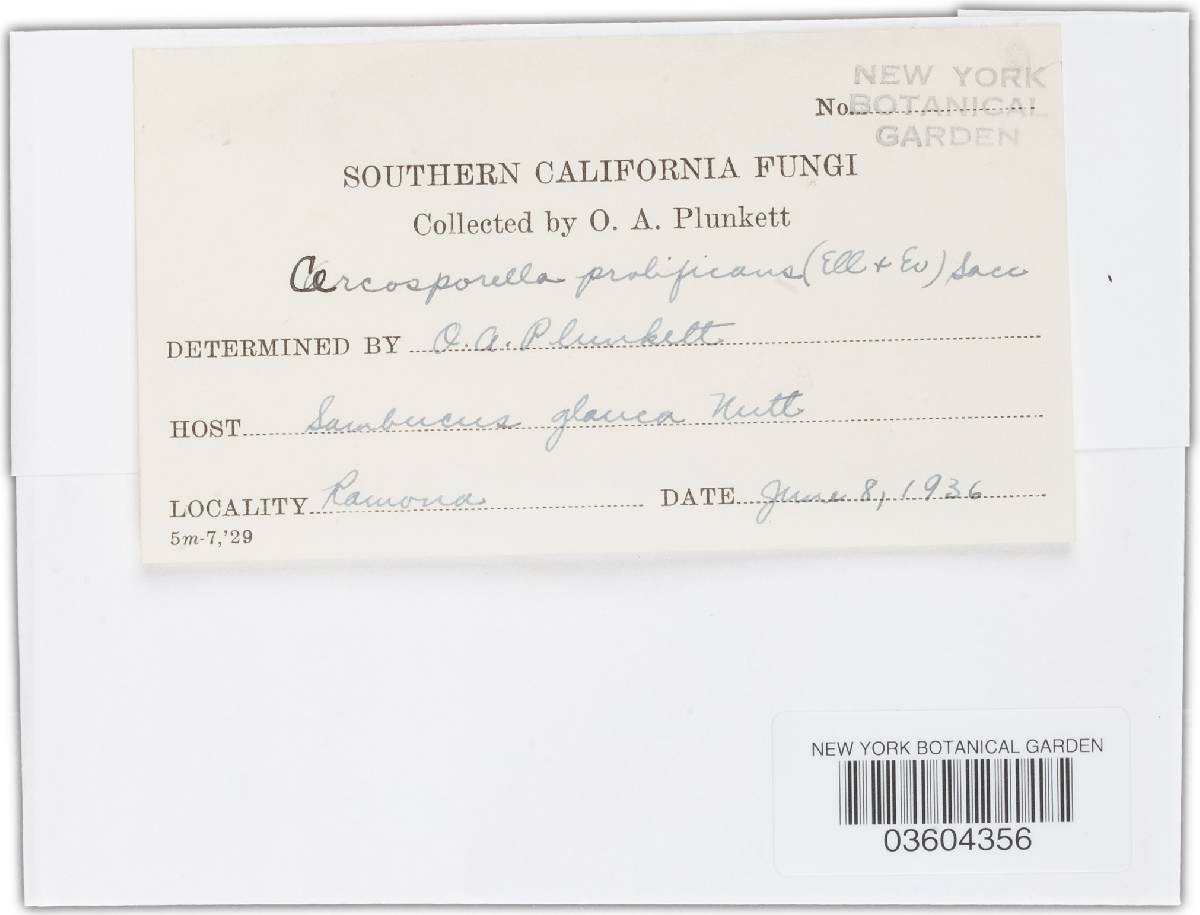 NEW YORK
BOTANICAL
GARDEN
No.
SOUTHERN CALIFORNIA FUNGI
Collected by O. A. Plunkett
Cercosporella prolificans (Ell + Ev) Sacc
DETERMINED BY O. A. Plunkett
HOST Sambucus glauca Nutt
LOCALITY Ramona DATE June 8, 1936
5m-7,'29
NEW YORK BOTANICAL GARDEN
03604356